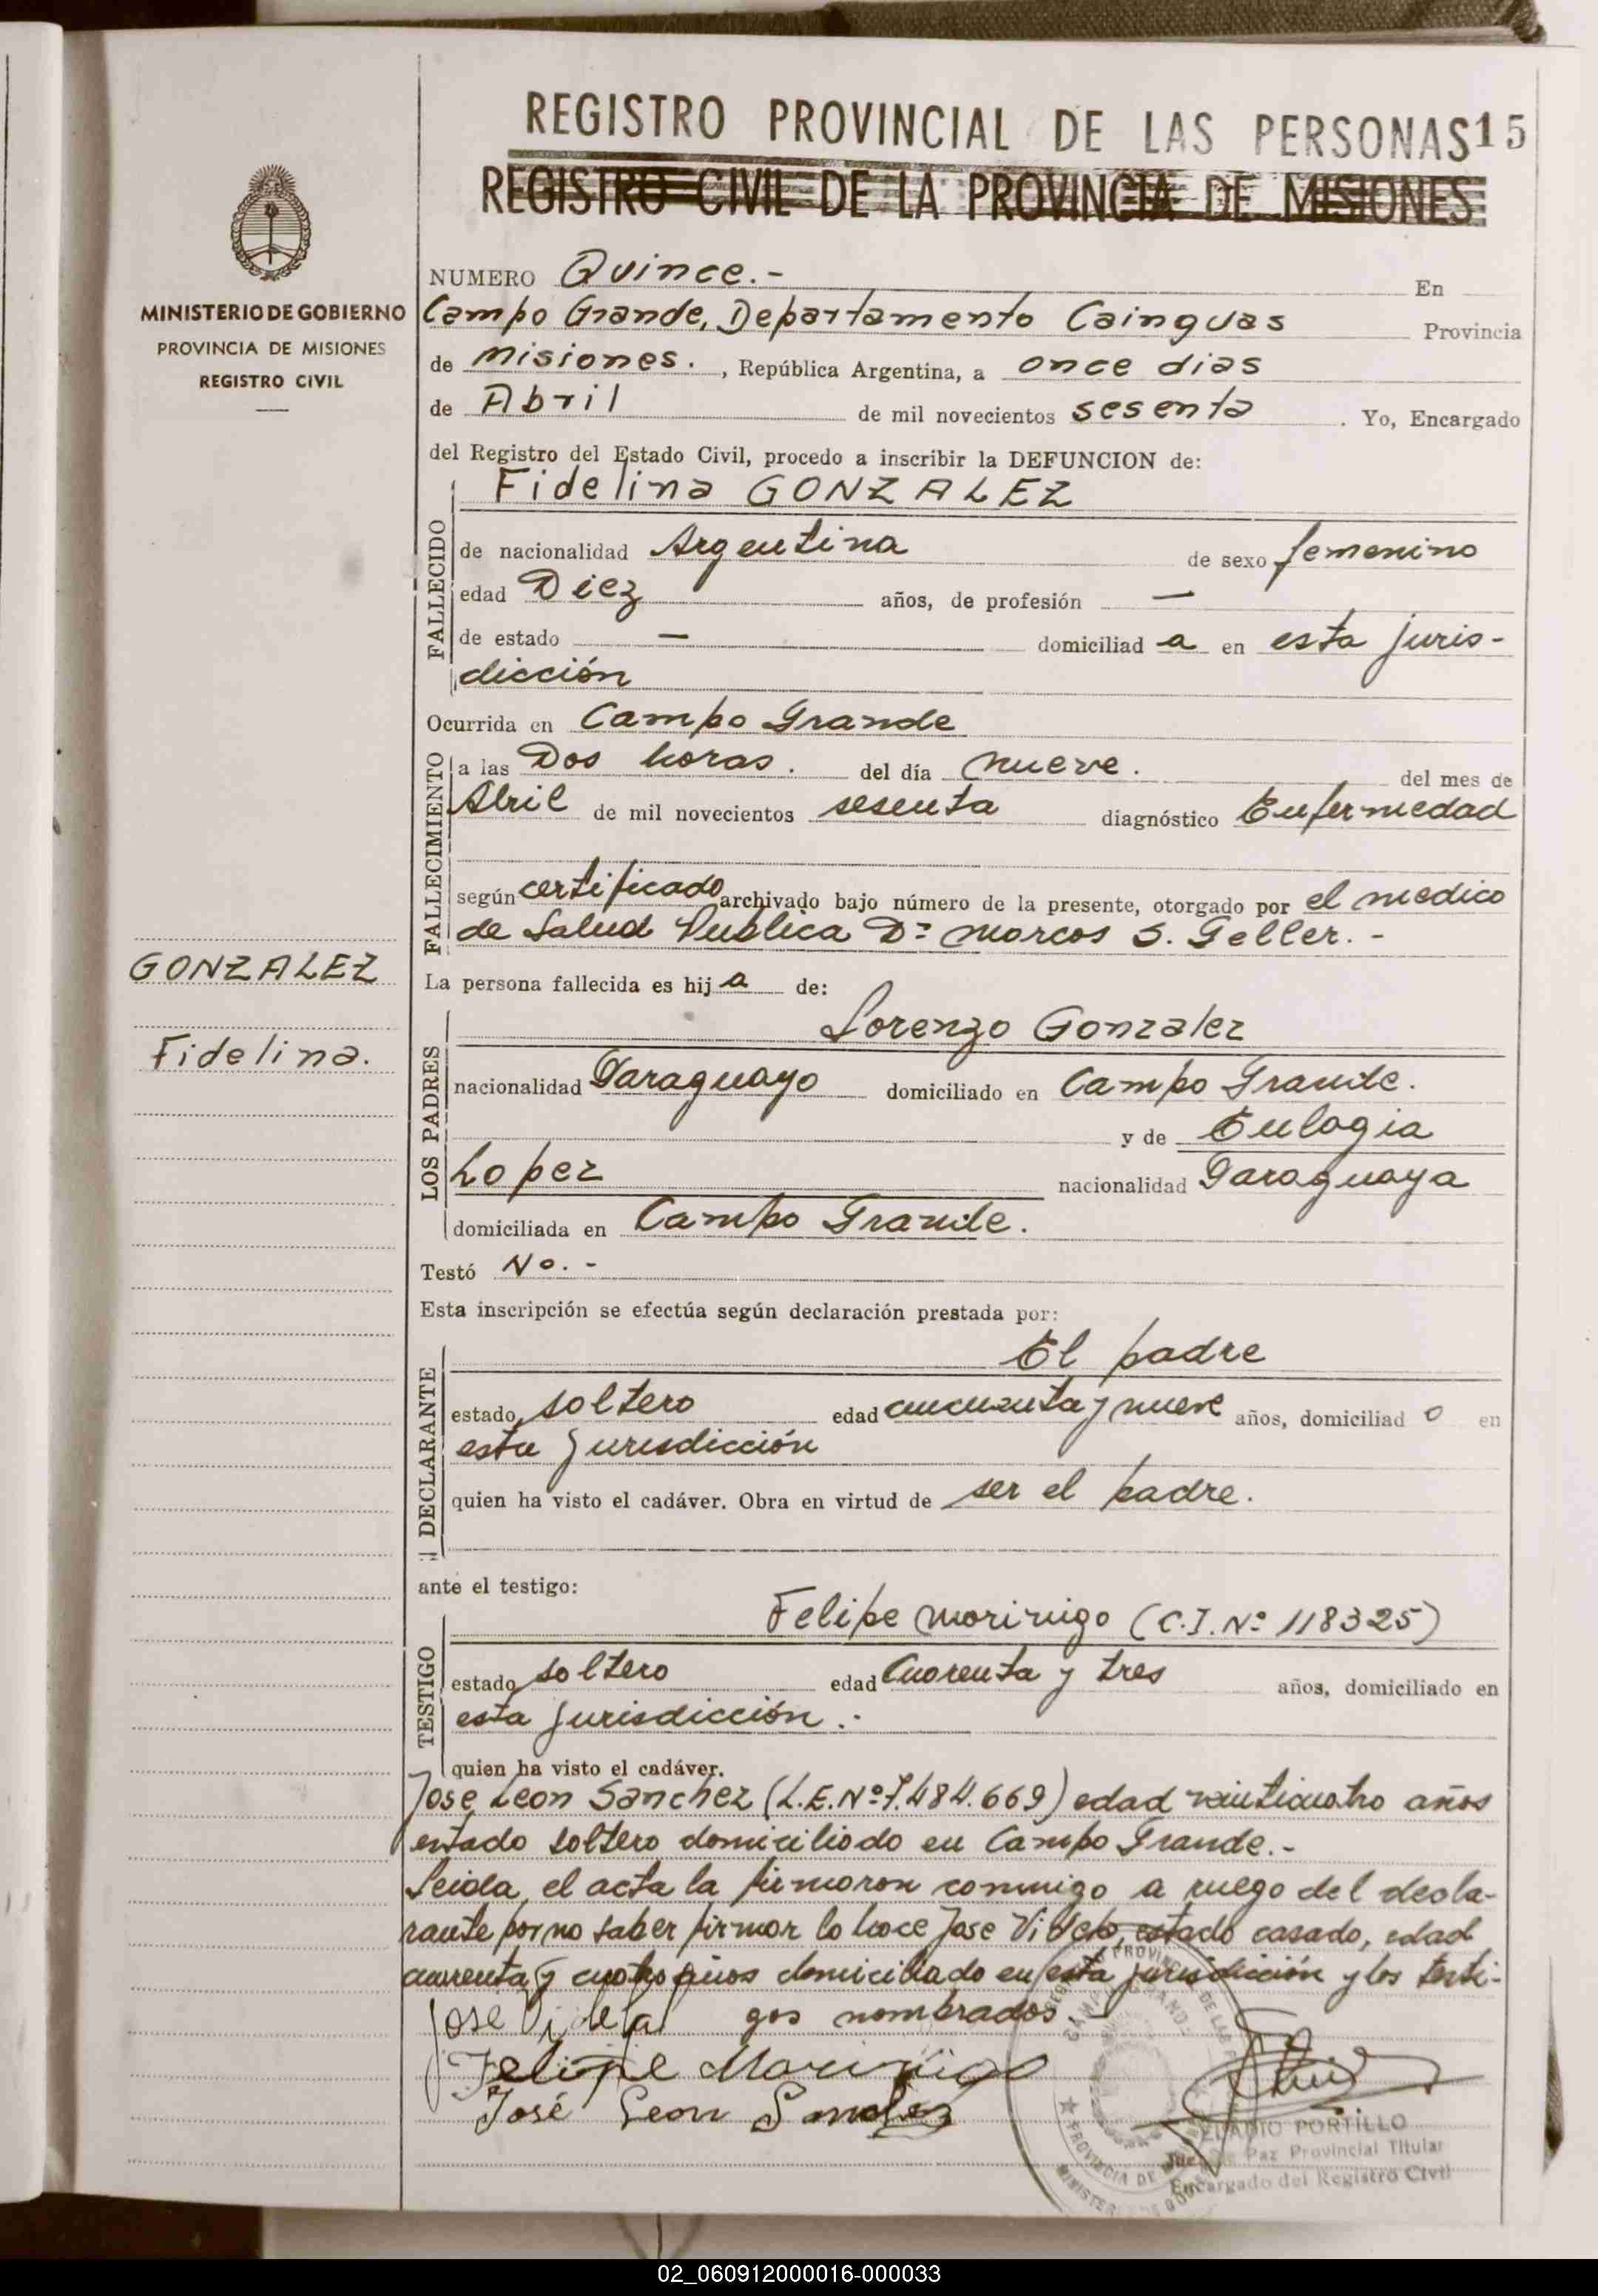 REGISTRO PROVINCIAL DE LAS PERSONAS 15
REGISTRO CIVIL DE LA PROVINCIA DE MISIONES
MINISTERIO DE GOBIERNO
PROVINCIA DE MISIONES
REGISTRO CIVIL
NUMERO Quince.- En
Campo Grande, Departamento Cainguas Provincia
de Misiones. , República Argentina, a once dias
de Abril de mil novecientos sesenta . Yo, Encargado
del Registro del Estado Civil, procedo a inscribir la DEFUNCION de:
FALLECIDO
Fidelina GONZALEZ
de nacionalidad Argentina de sexo femenino
edad Diez años, de profesión —
de estado — domiciliad a en esta juris-
dicción
Ocurrida en Campo Grande
FALLECIMIENTO
a las Dos horas. del día nueve. del mes de
Abril de mil novecientos sesenta diagnóstico Enfermedad
según certificado archivado bajo número de la presente, otorgado por el medico
de Salud Publica Dr Marcos S. Geller.-
GONZALEZ
Fidelina.
La persona fallecida es hij a de:
LOS PADRES
Lorenzo Gonzalez
nacionalidad Paraguayo domiciliado en Campo Grande.
y de Eulogia
Lopez nacionalidad Paraguaya
domiciliada en Campo Grande.
Testó No.-
Esta inscripción se efectúa según declaración prestada por:
DECLARANTE
El padre
estado soltero edad cincuenta y nueve años, domiciliad o en
esta jurisdicción
quien ha visto el cadáver. Obra en virtud de ser el padre.
ante el testigo:
TESTIGO
Felipe Morinigo (C.I. Nº 118325)
estado soltero edad Cuarenta y tres años, domiciliado en
esta jurisdicción.-
quien ha visto el cadáver.
Jose Leon Sanchez (L.E. Nº 7.484.669) edad veinticuatro años
estado soltero domiciliado en Campo Grande.-
Leida, el acta la firmaron conmigo a ruego del decla-
rante por no saber firmar lo hace Jose Videla, estado casado, edad
cuarenta y cuatro años domiciliado en esta jurisdicción y los testi-
gos nombrados.
Jose Videla
Felipe Morinigo
José Leon Sanchez
ELADIO PORTILLO
Juez de Paz Provincial Titular
Encargado del Registro Civil
02_060912000016-000033